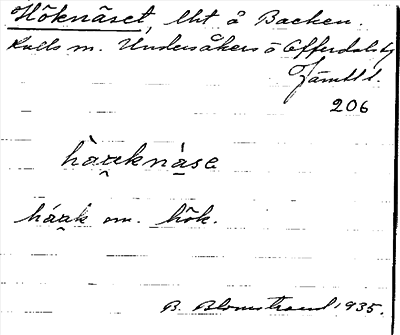 Höknäset, lht å Backen.
Kalls sn. Undersåkers o Offerdals tg
Jämtl l.
206
hàu̯knǻse
háu̯k om. hök.
B. Blomstrand 1935.